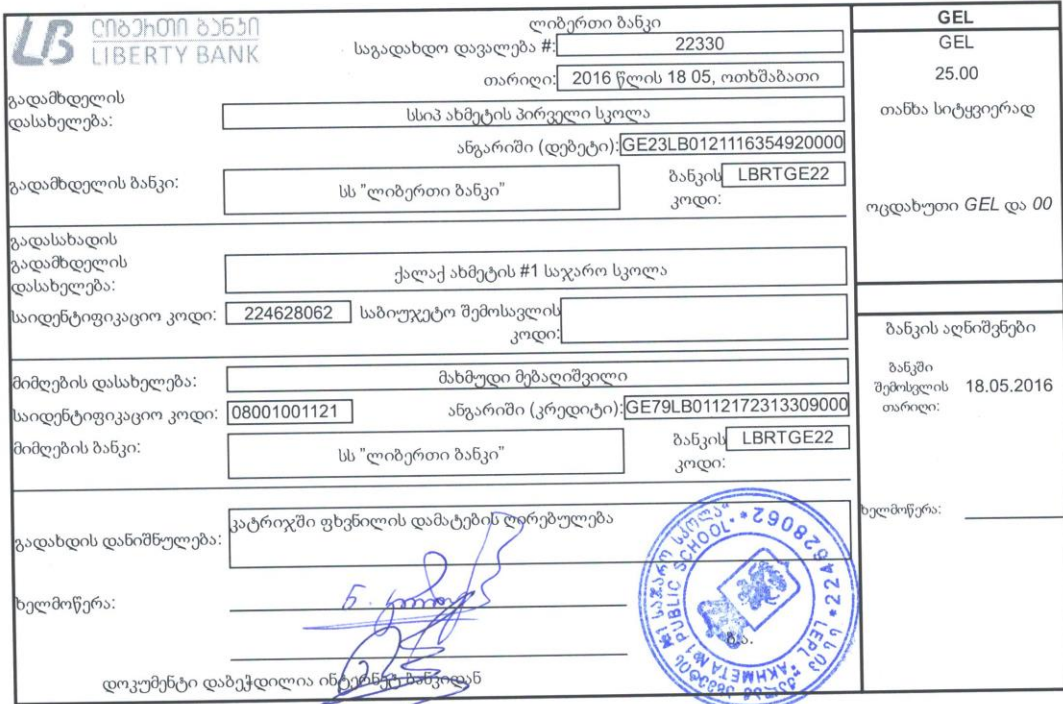 LB ლიბერთი ბანკი
LIBERTY BANK
ლიბერთი ბანკი
საგადახდო დავალება #: 22330
თარიღი: 2016 წლის 18 05, ოთხშაბათი
გადამხდელის
დასახელება: სსიპ ახმეტის პირველი სკოლა
ანგარიში (დებეტი): GE23LB0121116354920000
გადამხდელის ბანკი: სს "ლიბერთი ბანკი" ბანკის
კოდი: LBRTGE22
გადასახადის
გადამხდელის
დასახელება: ქალაქ ახმეტის #1 საჯარო სკოლა
საიდენტიფიკაციო კოდი: 224628062 საბიუჯეტო შემოსავლის
კოდი:
მიმღების დასახელება: მახმუდი მებაღიშვილი
საიდენტიფიკაციო კოდი: 08001001121 ანგარიში (კრედიტი): GE79LB0112172313309000
მიმღების ბანკი: სს "ლიბერთი ბანკი" ბანკის
კოდი: LBRTGE22
გადახდის დანიშნულება: კატრიჯში ფხვნილის დამატების ღირებულება
ხელმოწერა:
ბ.ა.
დოკუმენტი დაბეჭდილია ინტერნეტ ბანკიდან
GEL
GEL
25.00
თანხა სიტყვიერად
ოცდახუთი GEL და 00
ბანკის აღნიშვნები
ბანკში
შემოსვლის
თარიღი: 18.05.2016
ხელმოწერა:
№1 საჯარო სკოლა
*224628062*
LEPL "AKHMETA №1 PUBLIC SCHOOL"